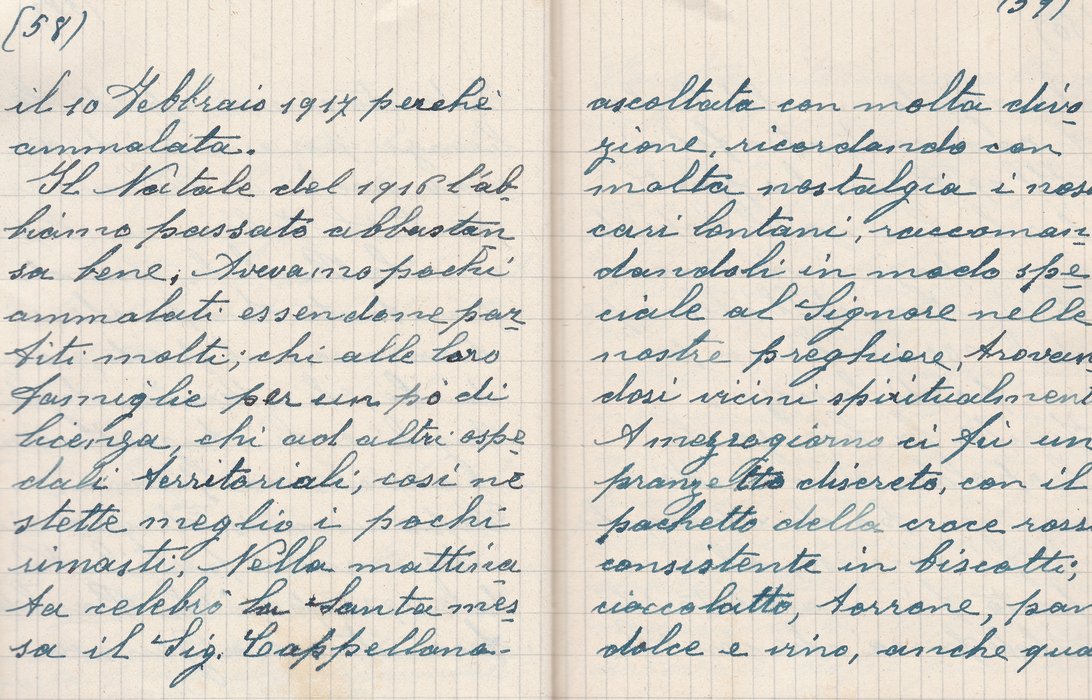 (58)
il 10 Febbraio 1917 perchè
ammalata.
Il Natale del 1916 l'ab
biamo passato abbastan
sa bene, Avevamo pochi
ammalati essendone par
titi molti; chi alle loro
famiglie per un pò di
licenza, chi ad altri ospe
dali territoriali, così ne
stette meglio i pochi
rimasti. Nella mattina
ta celebrò la Santa mes
sa il Sig. Cappellano-
(59)
ascoltata con molta divo
zione, ricordando con
molta nostalgia i nos
cari lontani, raccoman
dandoli in modo spe
ciale al Signore nelle
nostre preghiere, trovan
dosi vicini spiritualmen
A mezzogiorno ci fù un
pranzetto discreto, con il
pachetto della croce ross
consistente in biscotti;
cioccolatto, torrone, pan
dolce e vino, anche qua